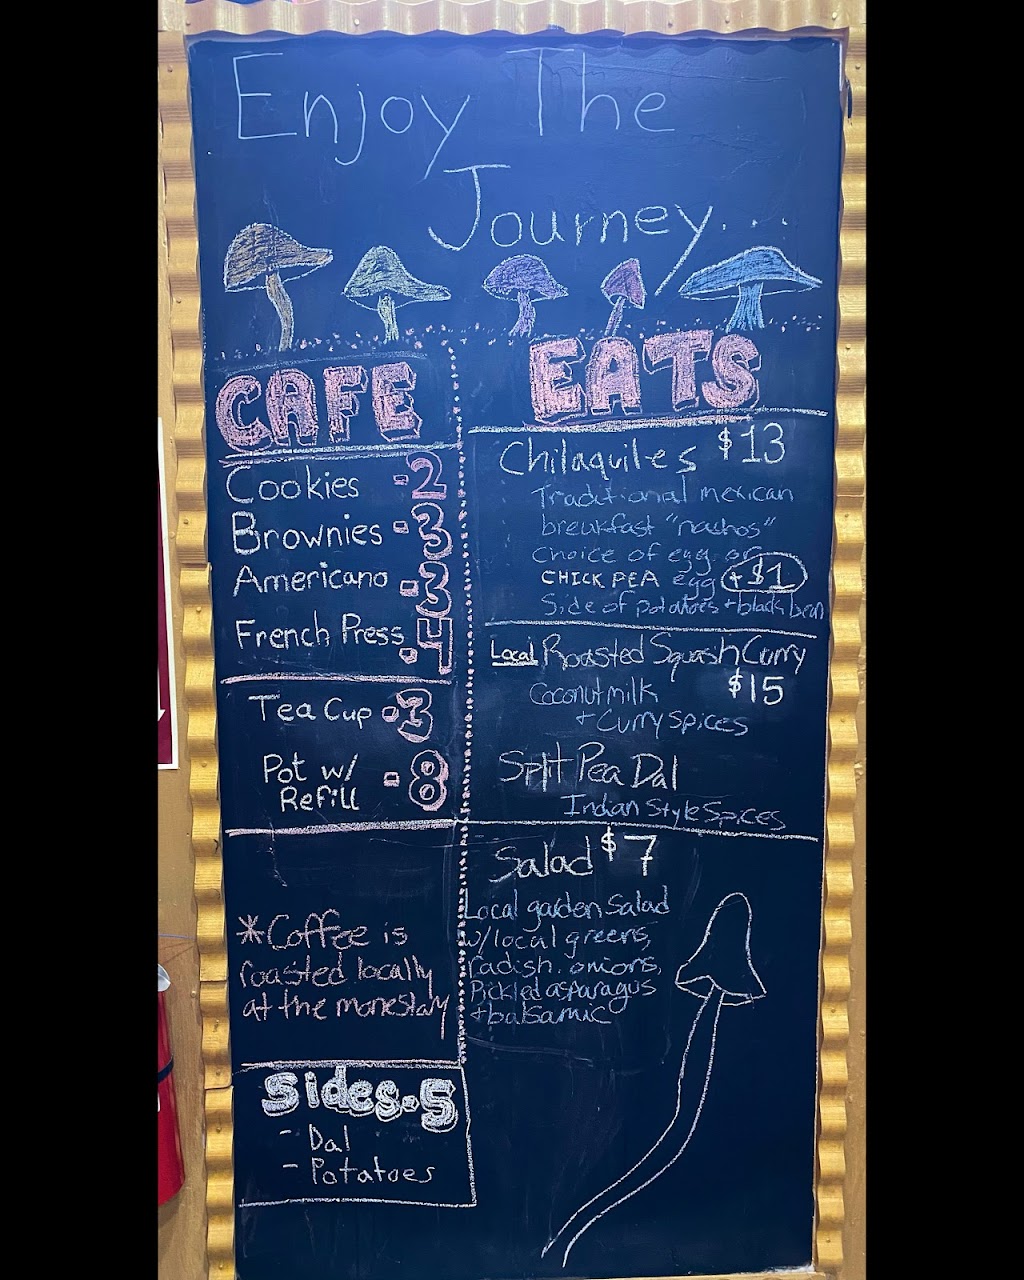 Enjoy The
Journey...
CAFE
Cookies -2
Brownies -3
Americano -3
French Press -4
Tea Cup -3
Pot w/
Refill -8
*Coffee is
roasted locally
at the monestary
Sides-5
- Dal
- Potatoes
EATS
Chilaquiles $13
Traditional mexican
breakfast "nachos"
choice of egg or
CHICK PEA egg +$1
Side of potatoes + black bean
Local Roasted Squash Curry
$15
Coconut milk
+ Curry spices
Split Pea Dal
Indian Style Spices
Salad $7
Local garden Salad
w/local greens,
radish, onions,
Pickled asparagus
+ balsamic